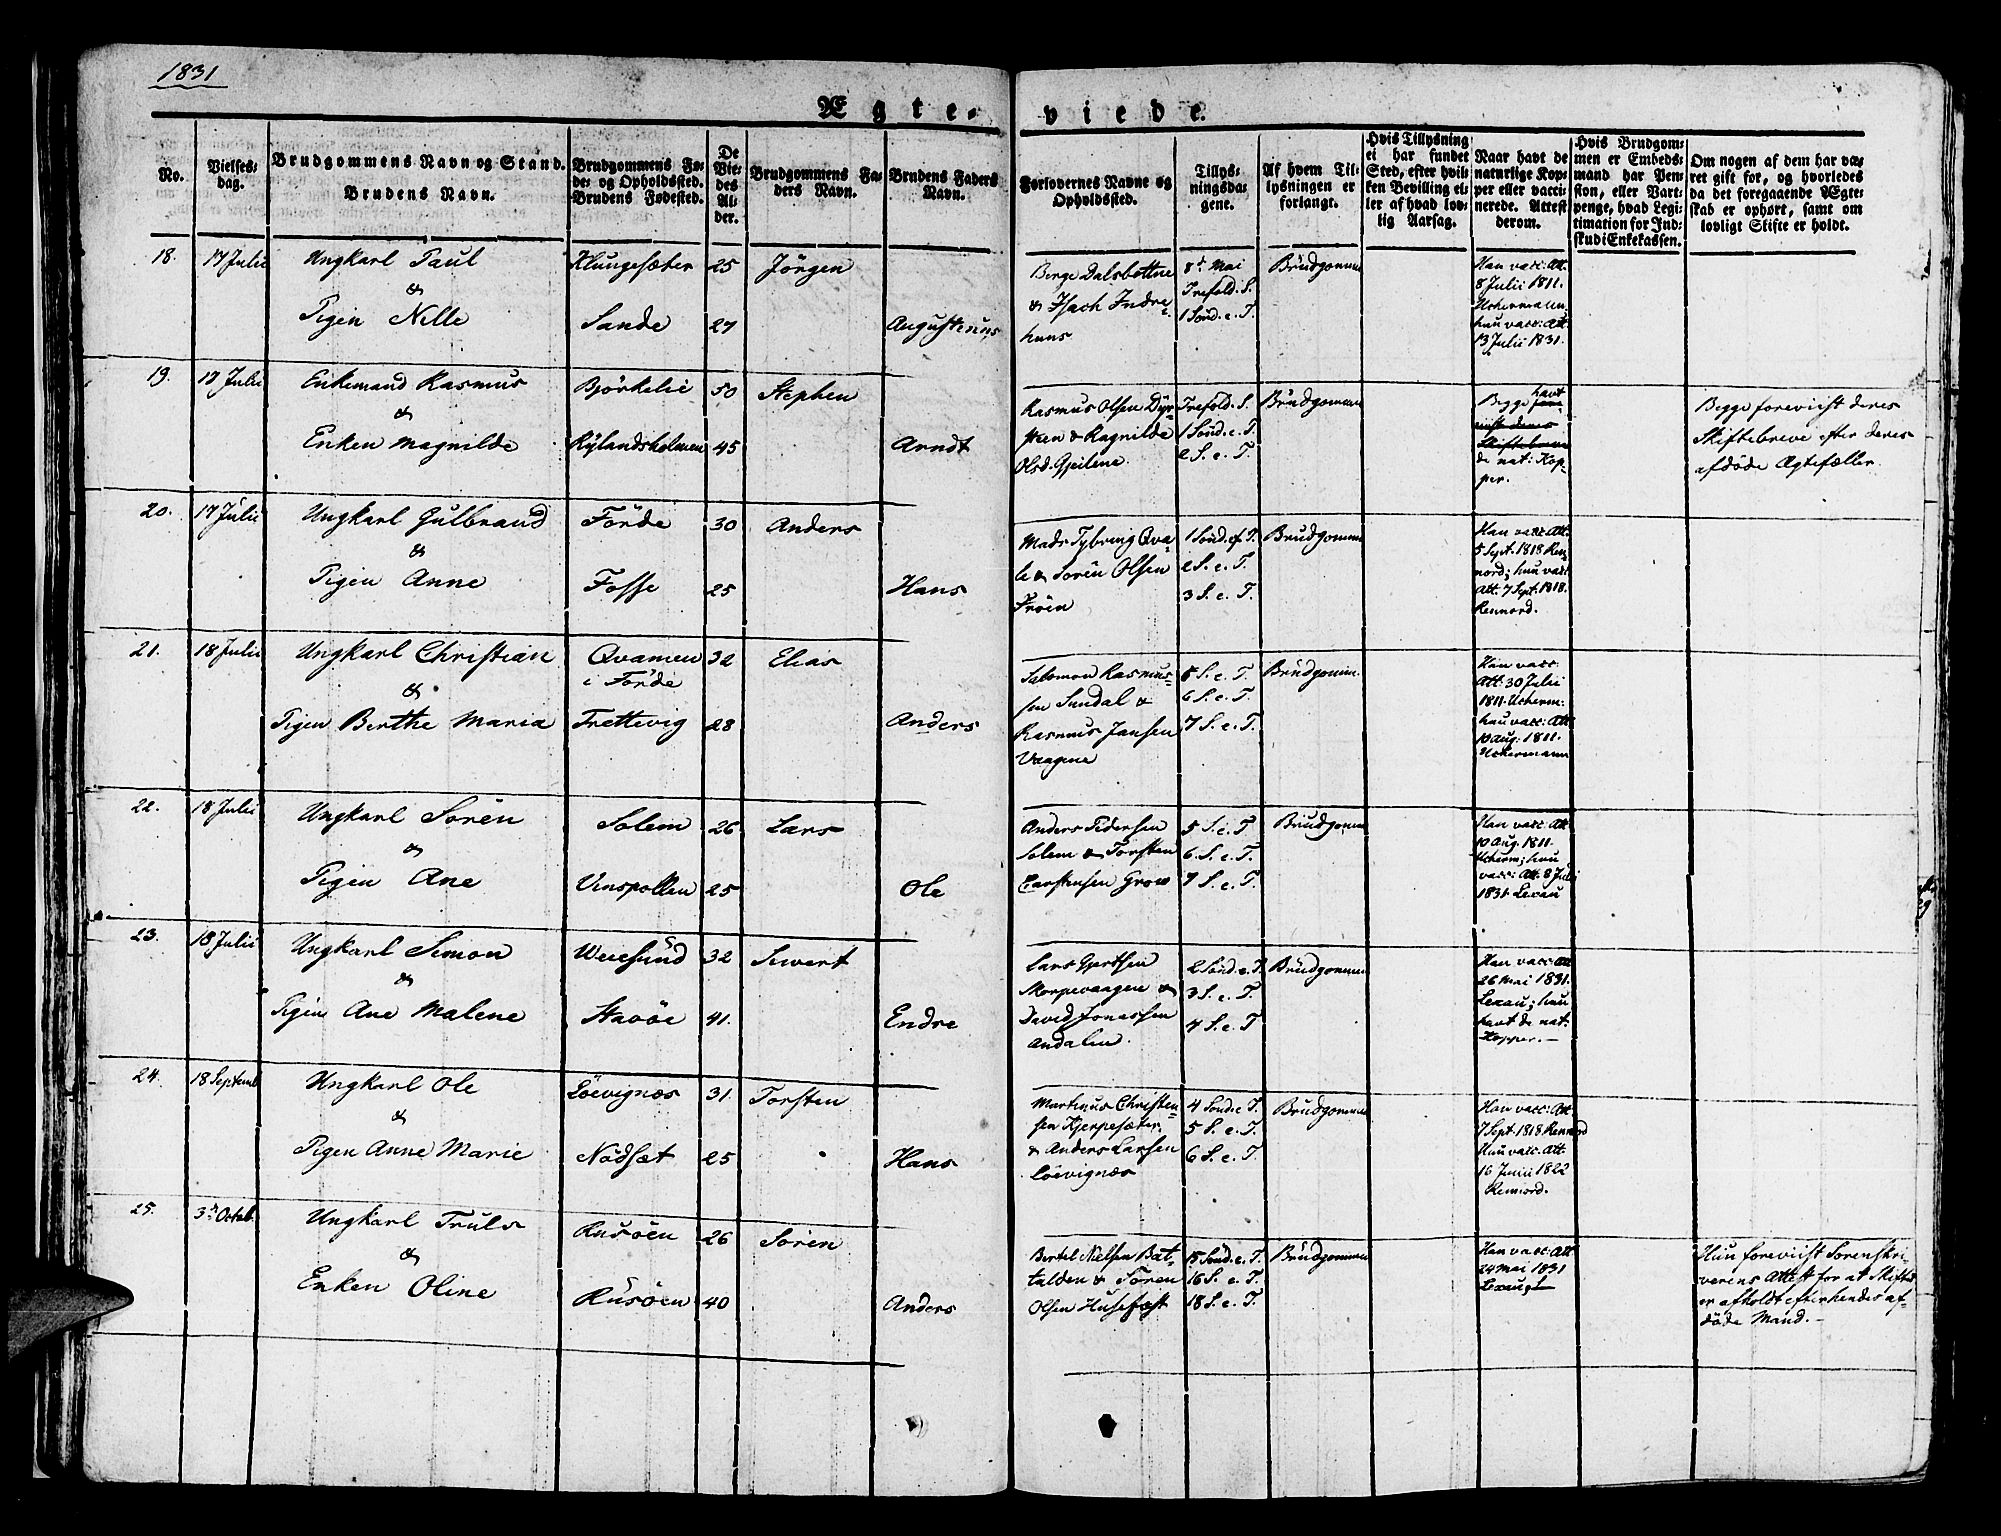 1831
Ægte-viede.
No.
Vielses-
dag.
Brudgommens Navn og Stand.
Brudens Navn.
Brudgommens Fø-
de- og Opholdssted.
Brudens Fødested.
De
Vie-
des
Al-
der.
Brudgommens Fa-
ders Navn.
Brudens Faders
Navn.
Forlovernes Navne og
Opholdssted.
Tillys-
ningsda-
gene.
Af hvem Til-
lysningen er
forlangt.
Hvis Tillysning
ei har fundet
Sted, efter hvil-
ken Bevilling el-
ler af hvad lov-
lig Aarsag.
Naar havt de
naturlige Kop-
per eller vacci-
nerede. Attest
derom.
Hvis Brudgom-
men er Embeds-
mand har Pen-
sion, eller Vart-
penge, hvad Legi-
timation for Ind-
skud i Enkekassen.
Om nogen af dem har væ-
ret gift for, og hvorledes
da det foregaaende Ægte-
skab er ophørt, samt om
lovligt Skifte er holdt.
18. 17 Julii Ungkarl Paul Klungesæter 25 Jörgen
&
Pigen Nille Sande 27 Augustenus
Berge Dalsbottne
& Isach Indre-
huus
8d Mai
Trefold. S.
1 Sönd. e. T.
Brudgommen
Han vacc: Att.
8 Julii 1811.
Uchermann
hun vacc: Att.
13 Julii 1831.
19. 17 Julii Enkemand Rasmus Björkelie 50 Stephen
&
Enken Magnilde Rylandsholmen 45 Arndt
Rasmus Olsen Dyr-
steen & Ragnilde
Olsd. Gjeilene.
Trefold. S.
1 Sönd. e. T.
2 S. e. T.
Brudgommen
Begge havt
de nat: Kop-
per.
Begge foreviist deres
Skiftebreve efter deres
afdöde Ægtefæller.
20. 17 Julii Ungkarl Gulbrand Förde 30 Anders
&
Pigen Anne Fosse 25 Hans
Mads Tybring Qva-
le & Sören Olsen
Fröen
1 Sönd. ef. T.
2 S. e. T.
3 S. e. T.
Brudgommen
Han vacc: Att.
5 Sept. 1818 Ren-
nord; hun vacc.
Att. 7 Sept. 1818.
Rennord.
21. 18 Julii Ungkarl Christian Qvamen 32 Elias
i Förde
&
Pigen Berthe Maria Trettevig 28 Anders
Salomon Rasmus-
sen Sundal &
Rasmus Jansen
Vaagene
5 S. e. T.
6 S. e. T
7 S. e. T.
Brudgomm.
Han vacc.
Att. 30 Julii
1811. Ucherm:
hun vacc: Att
10 Aug. 1811.
Uchermann
22. 18 Julii Ungkarl Sören Solem 26 Lars
&
Pigen Ane Vinspollen 25 Ole
Anders Pedersen
Solem & Torsten
Carstensen Grow
5 S. e. T
6. S. e. T.
7 S. e. T.
Brudgomm
Han vacc: Att
10 Aug. 1811.
Ucherm; hun
vacc: Att. 8 Juli
1831. Lexau
23. 18 Julii Ungkarl Simon Weiesund 32 Siwert
&
Pigen Ane Malene Stavöe 41. Endre
Lars Gjertsen
Skorpevaagen &
David Jonassen
Andalen.
2 Sönd. e. T.
3 S. e. T.
4 S. e. T
Brudgommen
Han vacc: Att
26 Mai 1831.
Lexau; hun
havt de nat:
Kopper.—
24. 18 Septemb Ungkarl Ole Löevignæs 31. Torsten
&
Pigen Anne Marie Nödsæt 25 Hans
Martinus Christen-
sen Kjerpesæter.
& Anders Larsen
Löevignæs
4 Sönd. e. T.
5 S. e. T.
6 S. e. T.
Brudgommen
Han vacc: Att.
7 Sept. 1818 Rennord
Hun vacc. Att.
16 Junii 1822
Rennord.
25. 3d Octob. Ungkarl Truls Rusöen 26 Sören
&
Enken Oline Rusöen 40 Anders
Bertel Nielsen Bat-
talden & Sören
Olsen Husefæst
15 Sönd. e. T.
16 S. e. T.
18 S. e. T.
Brudgommen
Han vacc. Att
24 Mai 1831
Lexau
Hun foreviist Sorenskri-
verens Attest for at Skiftet
er afholdt efter hendes af-
döde Mand.—